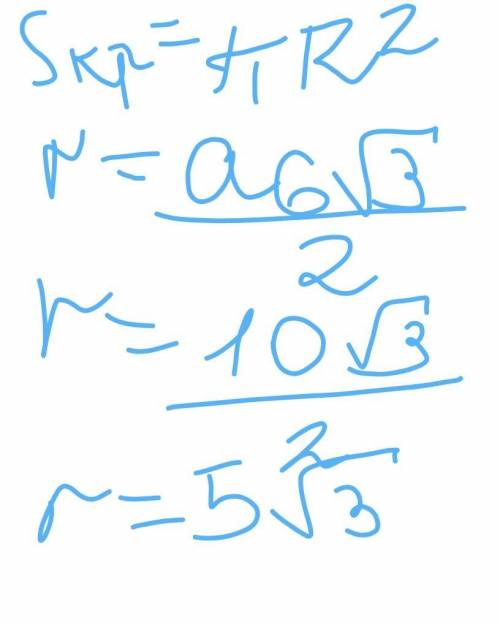 Sкр = πR²
r = a₆√3 / 2
r = 10√3 / 2
r = 5√3